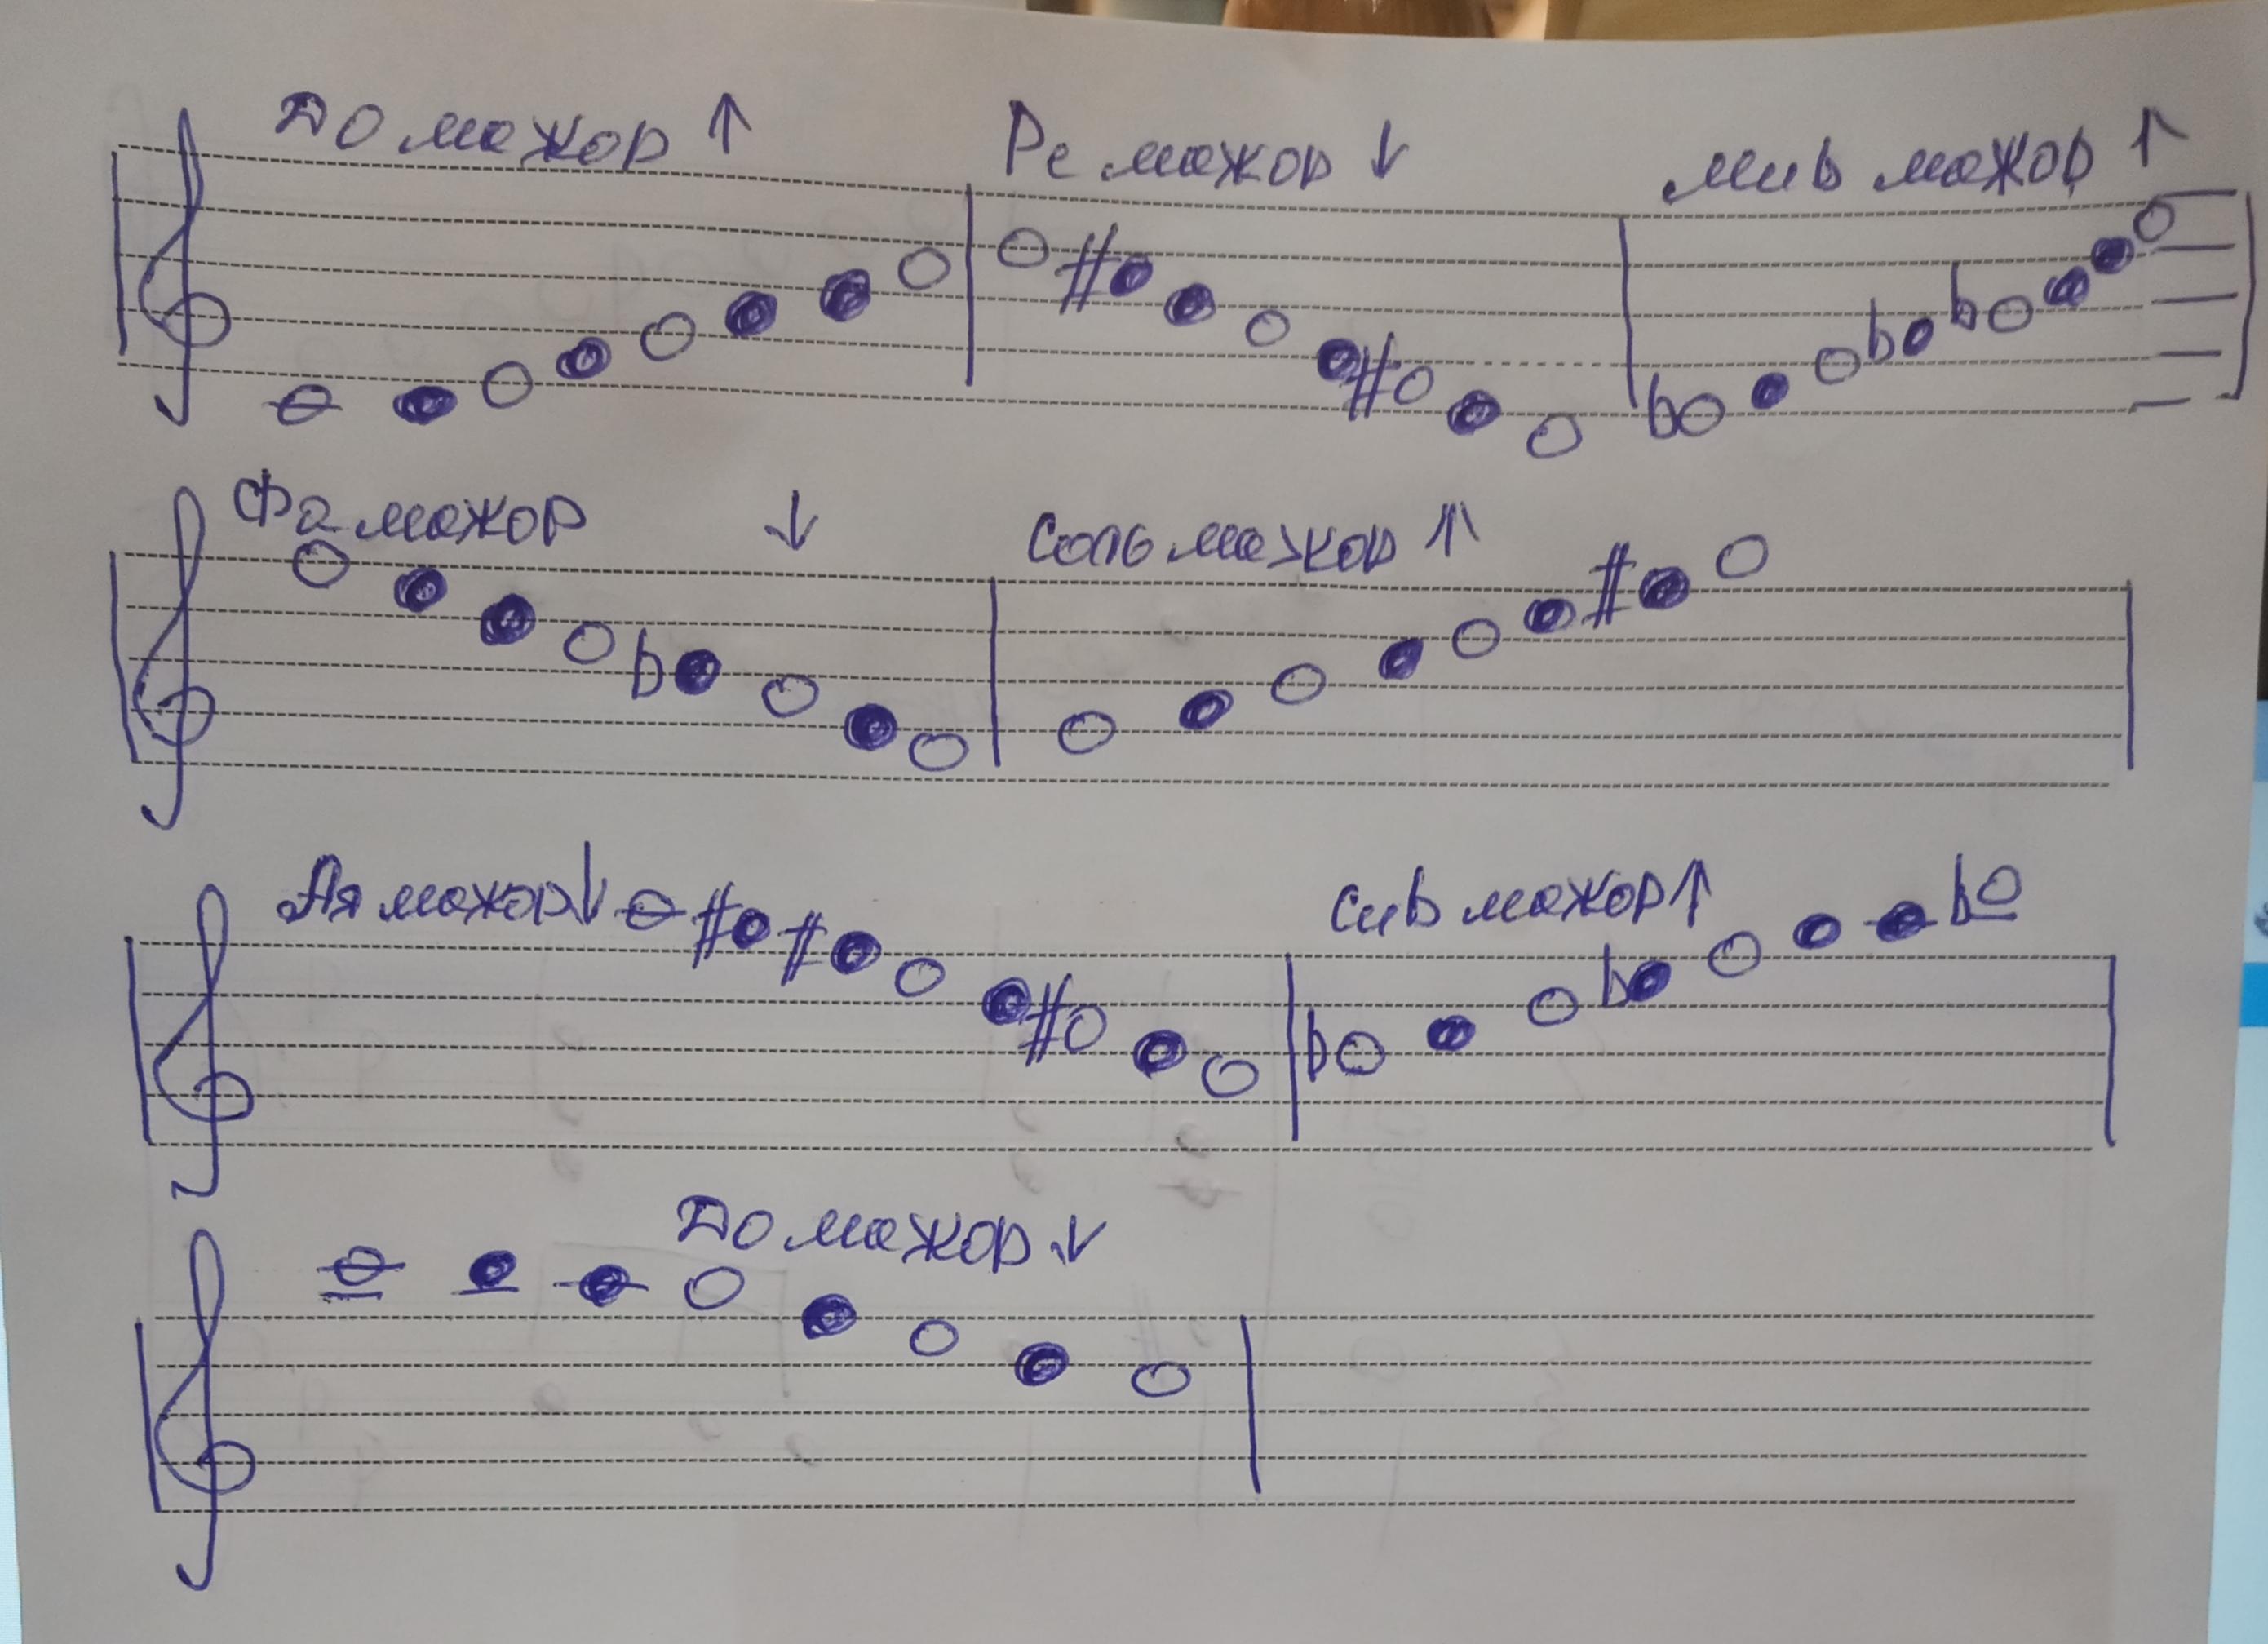 До мажор ↑ Ре мажор ↓ миь мажор ↑
Фа мажор ↓ Соль мажор ↑
Ля мажор ↓ Сиь мажор ↑
До мажор ↓